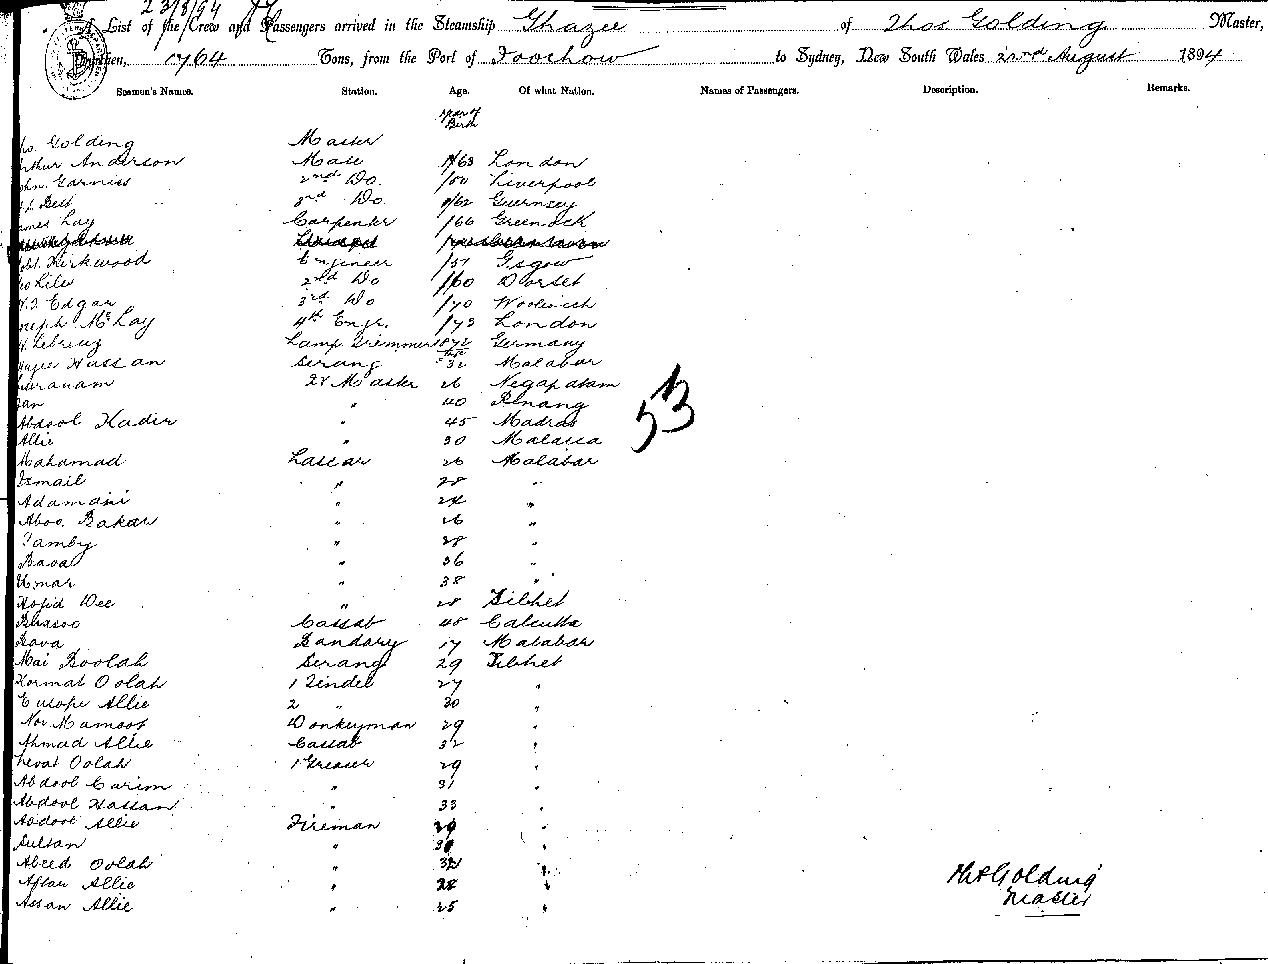 23/8/94
A List of the Crew and Passengers arrived in the Steamship Ghazee of Thos Golding Master,
Burthen, 1764 Tons, from the Port of Foochow to Sydney, New South Wales 22nd August 1894
Seamen's Names. Station. Age. Of what Nation. Names of Passengers. Description. Remarks.
year of Birth
Golding Master
Arthur Anderson Mate /63 London
Garniss 2nd Do. Liverpool
Belt 3rd Do. /62 Guernsey
Lay Carpenter /66 Greenock
Kirkwood Engineer /57 Gsgow
Lile 2nd Do /60 Dorset
Edgar 3rd Do /70 Woolwich
McLay 4th Engr. /73 London
Lamp Trimmer 1872 Germany
Hassan Serang 32 Malabar
Qr Master 26 Negapatam
" 40 Penang
Abdool Kadir " 45 Madras
Allie " 30 Malacca
Mahamad Lascar 26 Malabar
Ismail " 28 "
Adamani " 24 "
Aboo Bakar " 26 "
Tamby " 28 "
Bava " 36 "
Umar " 38 "
" 28 Silhet
Cassab 48 Calcutta
Bava Bandary 17 Malabar
Mai Boolah Serang 29 Silhet
Kormat Oolah 1 Tindel 27 "
Eusope Allie 2 " 30 "
Nor Mamoot Donkeyman 29 "
Ahmad Allie Cassab 32 "
Oolah 1 Greaser 29 "
Abdool Carim " 31 "
Abdool Hassan " 33 "
Abdool Allie Fireman 29 "
Sultan " "
Abeed Oolah " 32 "
Aftar Allie " 28 "
Assan Allie " 25 "
53
Thos Golding
Master